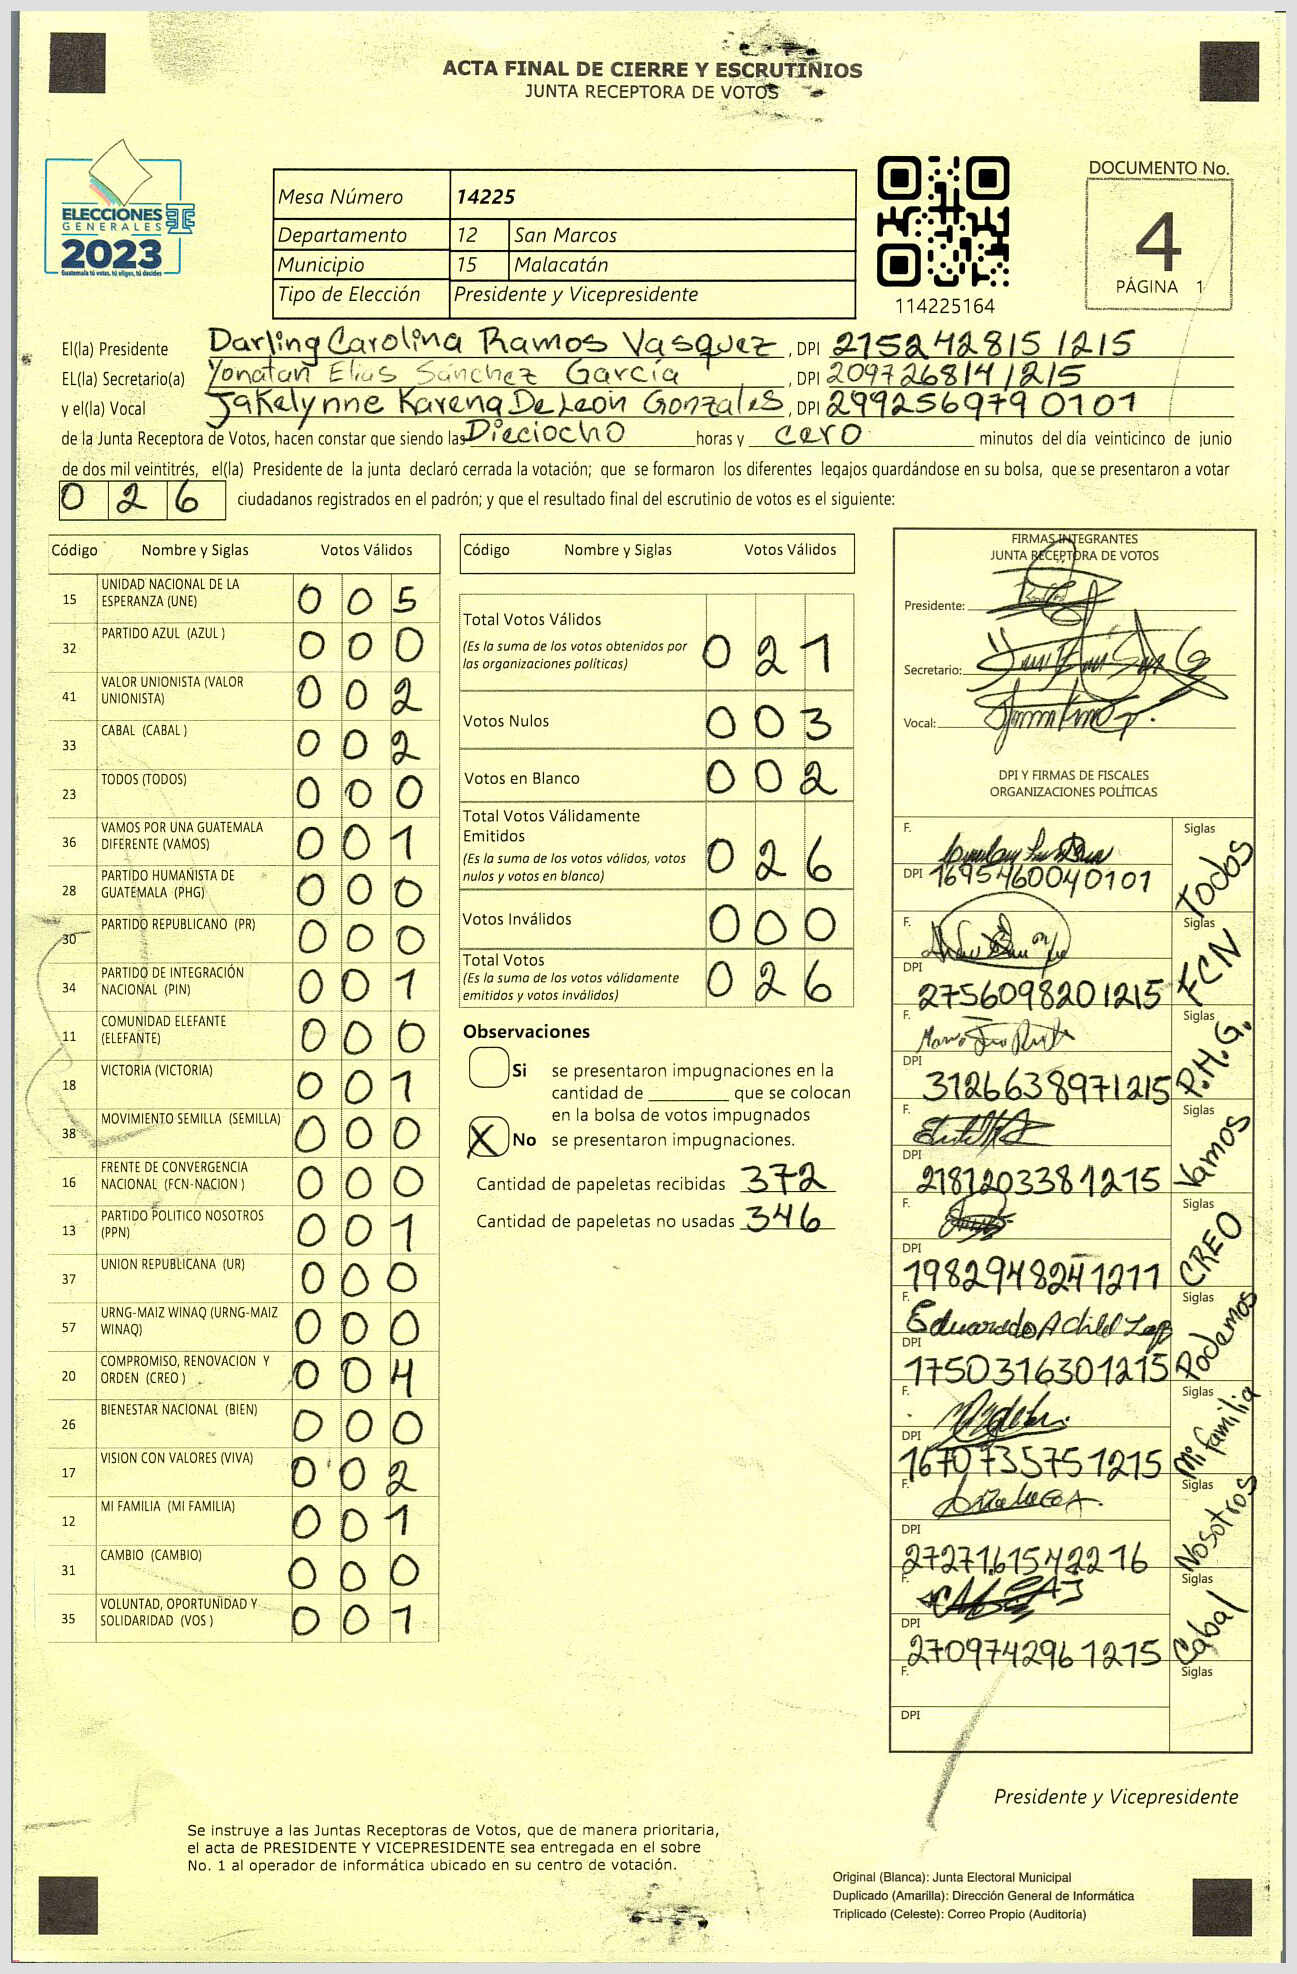 ACTA FINAL DE CIERRE Y ESCRUTINIOS
JUNTA RECEPTORA DE VOTOS
ELECCIONES
GENERALES
2023
Guatemala tú votas, tú eliges, tú decides
Mesa Número 14225
Departamento 12 San Marcos
Municipio 15 Malacatán
Tipo de Elección Presidente y Vicepresidente
114225164
DOCUMENTO No.
4
PÁGINA 1
El(la) Presidente Darling Carolina Ramos Vasquez, DPI 2152428151215
EL(la) Secretario(a) Yonatan Elias Sánchez García, DPI 2097268141215
y el(la) Vocal Jakelynne Karena De Leon Gonzales, DPI 2992569790101
de la Junta Receptora de Votos, hacen constar que siendo las Dieciocho horas y cero minutos del día veinticinco de junio
de dos mil veintitrés, el(la) Presidente de la junta declaró cerrada la votación; que se formaron los diferentes legajos guardándose en su bolsa, que se presentaron a votar
026 ciudadanos registrados en el padrón; y que el resultado final del escrutinio de votos es el siguiente:
Código Nombre y Siglas Votos Válidos
15 UNIDAD NACIONAL DE LA ESPERANZA (UNE) 005
32 PARTIDO AZUL (AZUL ) 000
41 VALOR UNIONISTA (VALOR UNIONISTA) 002
33 CABAL (CABAL ) 002
23 TODOS (TODOS) 000
36 VAMOS POR UNA GUATEMALA DIFERENTE (VAMOS) 001
28 PARTIDO HUMANISTA DE GUATEMALA (PHG) 000
30 PARTIDO REPUBLICANO (PR) 000
34 PARTIDO DE INTEGRACIÓN NACIONAL (PIN) 001
11 COMUNIDAD ELEFANTE (ELEFANTE) 000
18 VICTORIA (VICTORIA) 001
38 MOVIMIENTO SEMILLA (SEMILLA) 000
16 FRENTE DE CONVERGENCIA NACIONAL (FCN-NACION ) 000
13 PARTIDO POLITICO NOSOTROS (PPN) 001
37 UNION REPUBLICANA (UR) 000
57 URNG-MAIZ WINAQ (URNG-MAIZ WINAQ) 000
20 COMPROMISO, RENOVACION Y ORDEN (CREO ) 004
26 BIENESTAR NACIONAL (BIEN) 000
17 VISION CON VALORES (VIVA) 002
12 MI FAMILIA (MI FAMILIA) 001
31 CAMBIO (CAMBIO) 000
35 VOLUNTAD, OPORTUNIDAD Y SOLIDARIDAD (VOS ) 001
Código Nombre y Siglas Votos Válidos
Total Votos Válidos 021
(Es la suma de los votos obtenidos por
las organizaciones políticas)
Votos Nulos 003
Votos en Blanco 002
Total Votos Válidamente
Emitidos 026
(Es la suma de los votos válidos, votos
nulos y votos en blanco)
Votos Inválidos 000
Total Votos 026
(Es la suma de los votos válidamente
emitidos y votos inválidos)
Observaciones
Si se presentaron impugnaciones en la
cantidad de que se colocan
en la bolsa de votos impugnados
X No se presentaron impugnaciones.
Cantidad de papeletas recibidas 372
Cantidad de papeletas no usadas 346
FIRMAS INTEGRANTES
JUNTA RECEPTORA DE VOTOS
Presidente:
Secretario:
Vocal:
DPI Y FIRMAS DE FISCALES
ORGANIZACIONES POLÍTICAS
F. Siglas Todos
DPI 1695460040101
F. Siglas FCN
DPI 2756098201215
F. Siglas P.H.G.
DPI 3126638971215
F. Siglas Vamos
DPI 2181203381215
F. Siglas CREO
DPI 1982948241211
F. Eduaredo Siglas Podemos
DPI 1750316301215
F. Siglas Mi familia
DPI 1670735751215
F. Siglas Nosotros
DPI 2727161542216
F. Siglas Cabal
DPI 2709742961215
F. Siglas
DPI
Presidente y Vicepresidente
Se instruye a las Juntas Receptoras de Votos, que de manera prioritaria,
el acta de PRESIDENTE Y VICEPRESIDENTE sea entregada en el sobre
No. 1 al operador de informática ubicado en su centro de votación.
Original (Blanca): Junta Electoral Municipal
Duplicado (Amarilla): Dirección General de Informática
Triplicado (Celeste): Correo Propio (Auditoría)